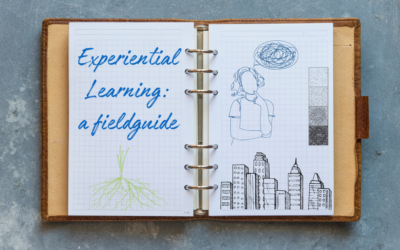 Experiential
Learning:
a fieldguide